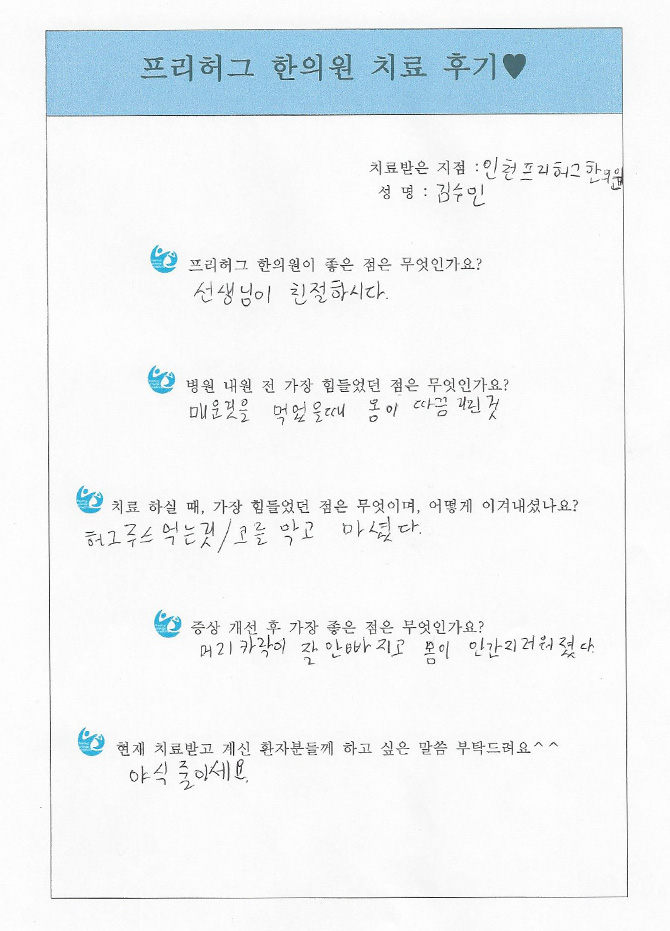 프리허그 한의원 치료 후기♥
치료받은 지점 : 인천프리허그한의원
성 명 : 김수민
프리허그 한의원이 좋은 점은 무엇인가요?
선생님이 친절하시다.
병원 내원 전 가장 힘들었던 점은 무엇인가요?
매운것을 먹었을때 몸이 따끔거린것
치료 하실 때, 가장 힘들었던 점은 무엇이며, 어떻게 이겨내셨나요?
허그루스 먹는것/코를 막고 마셨다.
증상 개선 후 가장 좋은 점은 무엇인가요?
머리카락이 잘 안빠지고 몸이 안간지러워졌다
현재 치료받고 계신 환자분들께 하고 싶은 말씀 부탁드려요^^
야식 줄이세요.